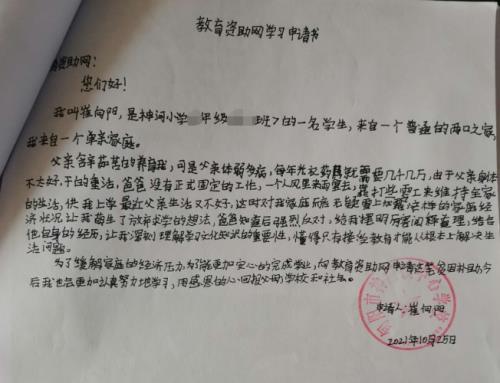 教育资助网学习申请书
资助网：
您们好！
我叫崔向阳，是神词小学 年级 班了的一名学生，来自一个普通的两口之家，
我来自一个单亲家庭。
父亲含辛茹苦的养育我，可是父亲体弱多病，每年光花药 就需要几千几万，由于父亲身体
不太好，干的重活，爸爸没有正式固定的工作，一个人风里来雨里去，靠打些零工来维持全家
的生活，供我上学最近父亲生活又不好，这时对我家庭 这样的家庭经
济状况让我萌生了放弃求学的想法，爸爸知道后强烈反对，给我摆明厉害阐释道理，结合
他自身的经历，让我深刻理解学习文化知识的重要性，懂得只有接受教育才能从根本上解决生
活问题。
为了缓解家庭的经济压力为了能更加安心的完成学业，向教育资助网申请这笔贫困补助，今
后我也会更加认真努力地学习，用感恩的心回报必用学校和社会。
申请人：崔向阳
2021年10月25日